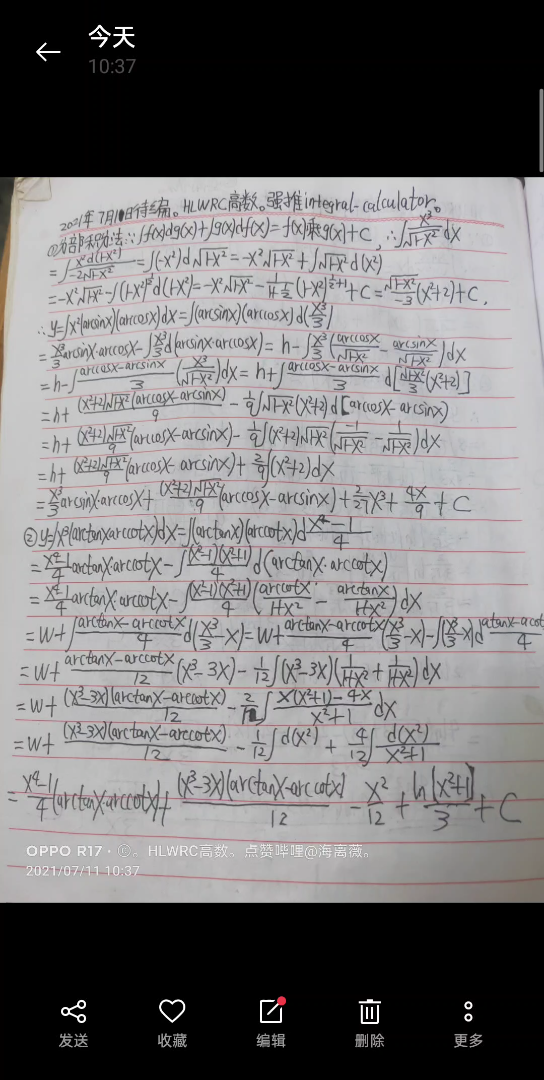 今天
10:37
2021年7月11日待编。HLWRC高数。强推integral-calculator。
①分部积分法:∵∫f(x)dg(x)+∫g(x)df(x)=f(x)乘g(x)+C,∴∫x³/√(1-x²) dx
=∫x²d(1-x²)/(-2√(1-x²))=∫(-x²)d√(1-x²)=-x²√(1-x²)+∫√(1-x²)d(x²)
=-x²√(1-x²)-∫(1-x²)^(1/2)d(1-x²)=-x²√(1-x²)-1/(1+1/2)(1-x²)^(1/2+1)+C=√(1-x²)/(-3)(x²+2)+C,
∴y=∫x²(arcsinx)(arccosx)dx=∫(arcsinx)(arccosx)d(x³/3)
=x³/3 arcsinx·arccosx-∫x³/3 d(arcsinx·arccosx)=h-∫x³/3(arccosx/√(1-x²)-arcsinx/√(1-x²))dx
=h-∫(arccosx-arcsinx)/3(x³/√(1-x²))dx=h+∫(arccosx-arcsinx)/3 d[√(1-x²)/3(x²+2)]
=h+(x²+2)√(1-x²)(arccosx-arcsinx)/9-1/9∫√(1-x²)(x²+2)d[arccosx-arcsinx)
=h+(x²+2)√(1-x²)/9(arccosx-arcsinx)-1/9∫(x²+2)√(1-x²)(-1/√(1-x²)-1/√(1-x²))dx
=h+(x²+2)√(1-x²)/9(arccosx-arcsinx)+2/9∫(x²+2)dx
=x³/3 arcsinx·arccosx+(x²+2)√(1-x²)/9(arccosx-arcsinx)+2/27x³+4x/9+C
②y=∫x³(arctanxarccotx)dx=∫(arctanx)(arccotx)d(x⁴-1)/4
=(x⁴-1)/4 arctanx·arccotx-∫(x²-1)(x²+1)/4 d(arctanx·arccotx)
=(x⁴-1)/4 arctanx·arccotx-∫(x²-1)(x²+1)/4(arccotx/(1+x²)-arctanx/(1+x²))dx
=W+∫(arctanx-arccotx)/4 d(x³/3-x)=W+(arctanx-arccotx)/4(x³/3-x)-∫(x³/3-x)d(atanx-acot)/4
=W+(arctanx-arccotx)/12(x³-3x)-1/12∫(x³-3x)(1/(1+x²)+1/(1+x²))dx
=W+(x³-3x)(arctanx-arccotx)/12-2/12∫(x(x²+1)-4x)/(x²+1)dx
=W+(x³-3x)(arctanx-arccotx)/12-1/12∫d(x²)+4/12∫d(x²)/(x²+1)
=(x⁴-1)/4(arctanx·arccotx)+(x³-3x)(arctanx-arccotx)/12-x²/12+ln(x²+1)/3+C
OPPO R17·©。HLWRC高数。点赞哔哩@海离薇。
2021/07/11 10:37
发送 收藏 编辑 删除 更多